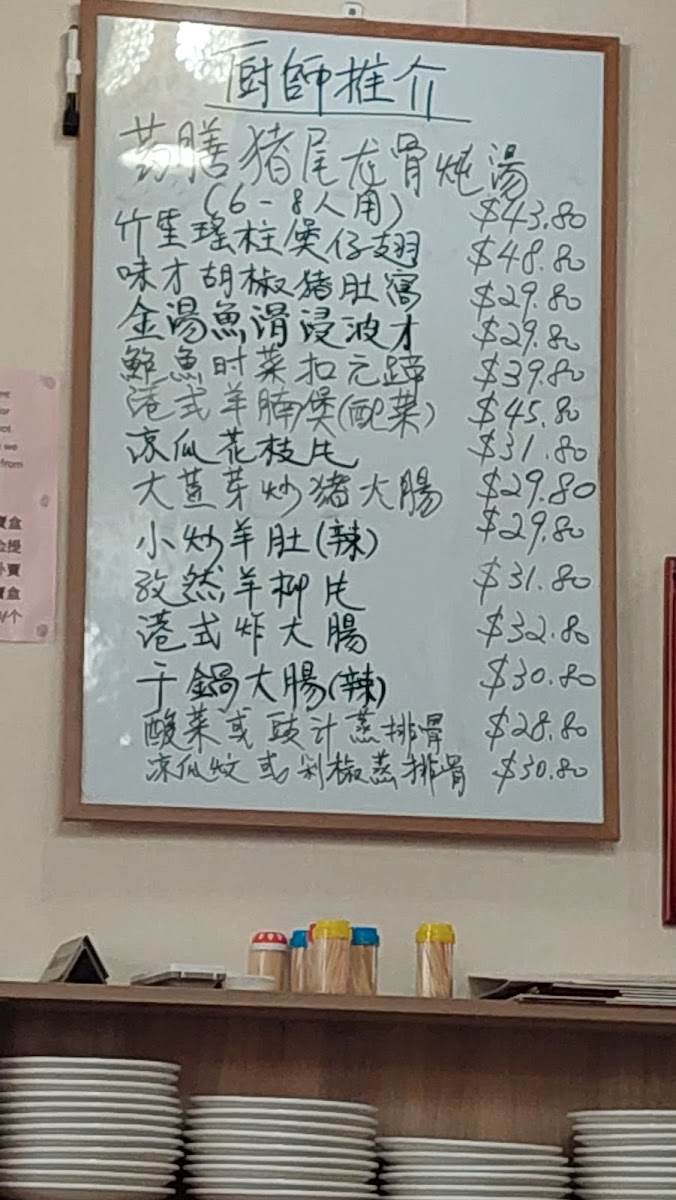 厨師推介
药膳猪尾龙骨炖湯
(6-8人用) $43.80
竹笙瑤柱煲仔翅 $48.80
味才胡椒猪肚窩 $29.80
金湯魚滑浸波才 $29.80
鮑魚时菜扣元蹄 $39.80
港式羊腩煲(配菜) $45.80
凉瓜花枝片 $31.80
大荳芽炒猪大腸 $29.80
小炒羊肚(辣) $29.80
孜然羊柳片 $31.80
港式炸大腸 $32.80
干鍋大腸(辣) $30.80
酸菜或豉汁蒸排骨 $28.80
凉瓜炆或剁椒蒸排骨 $30.80
from